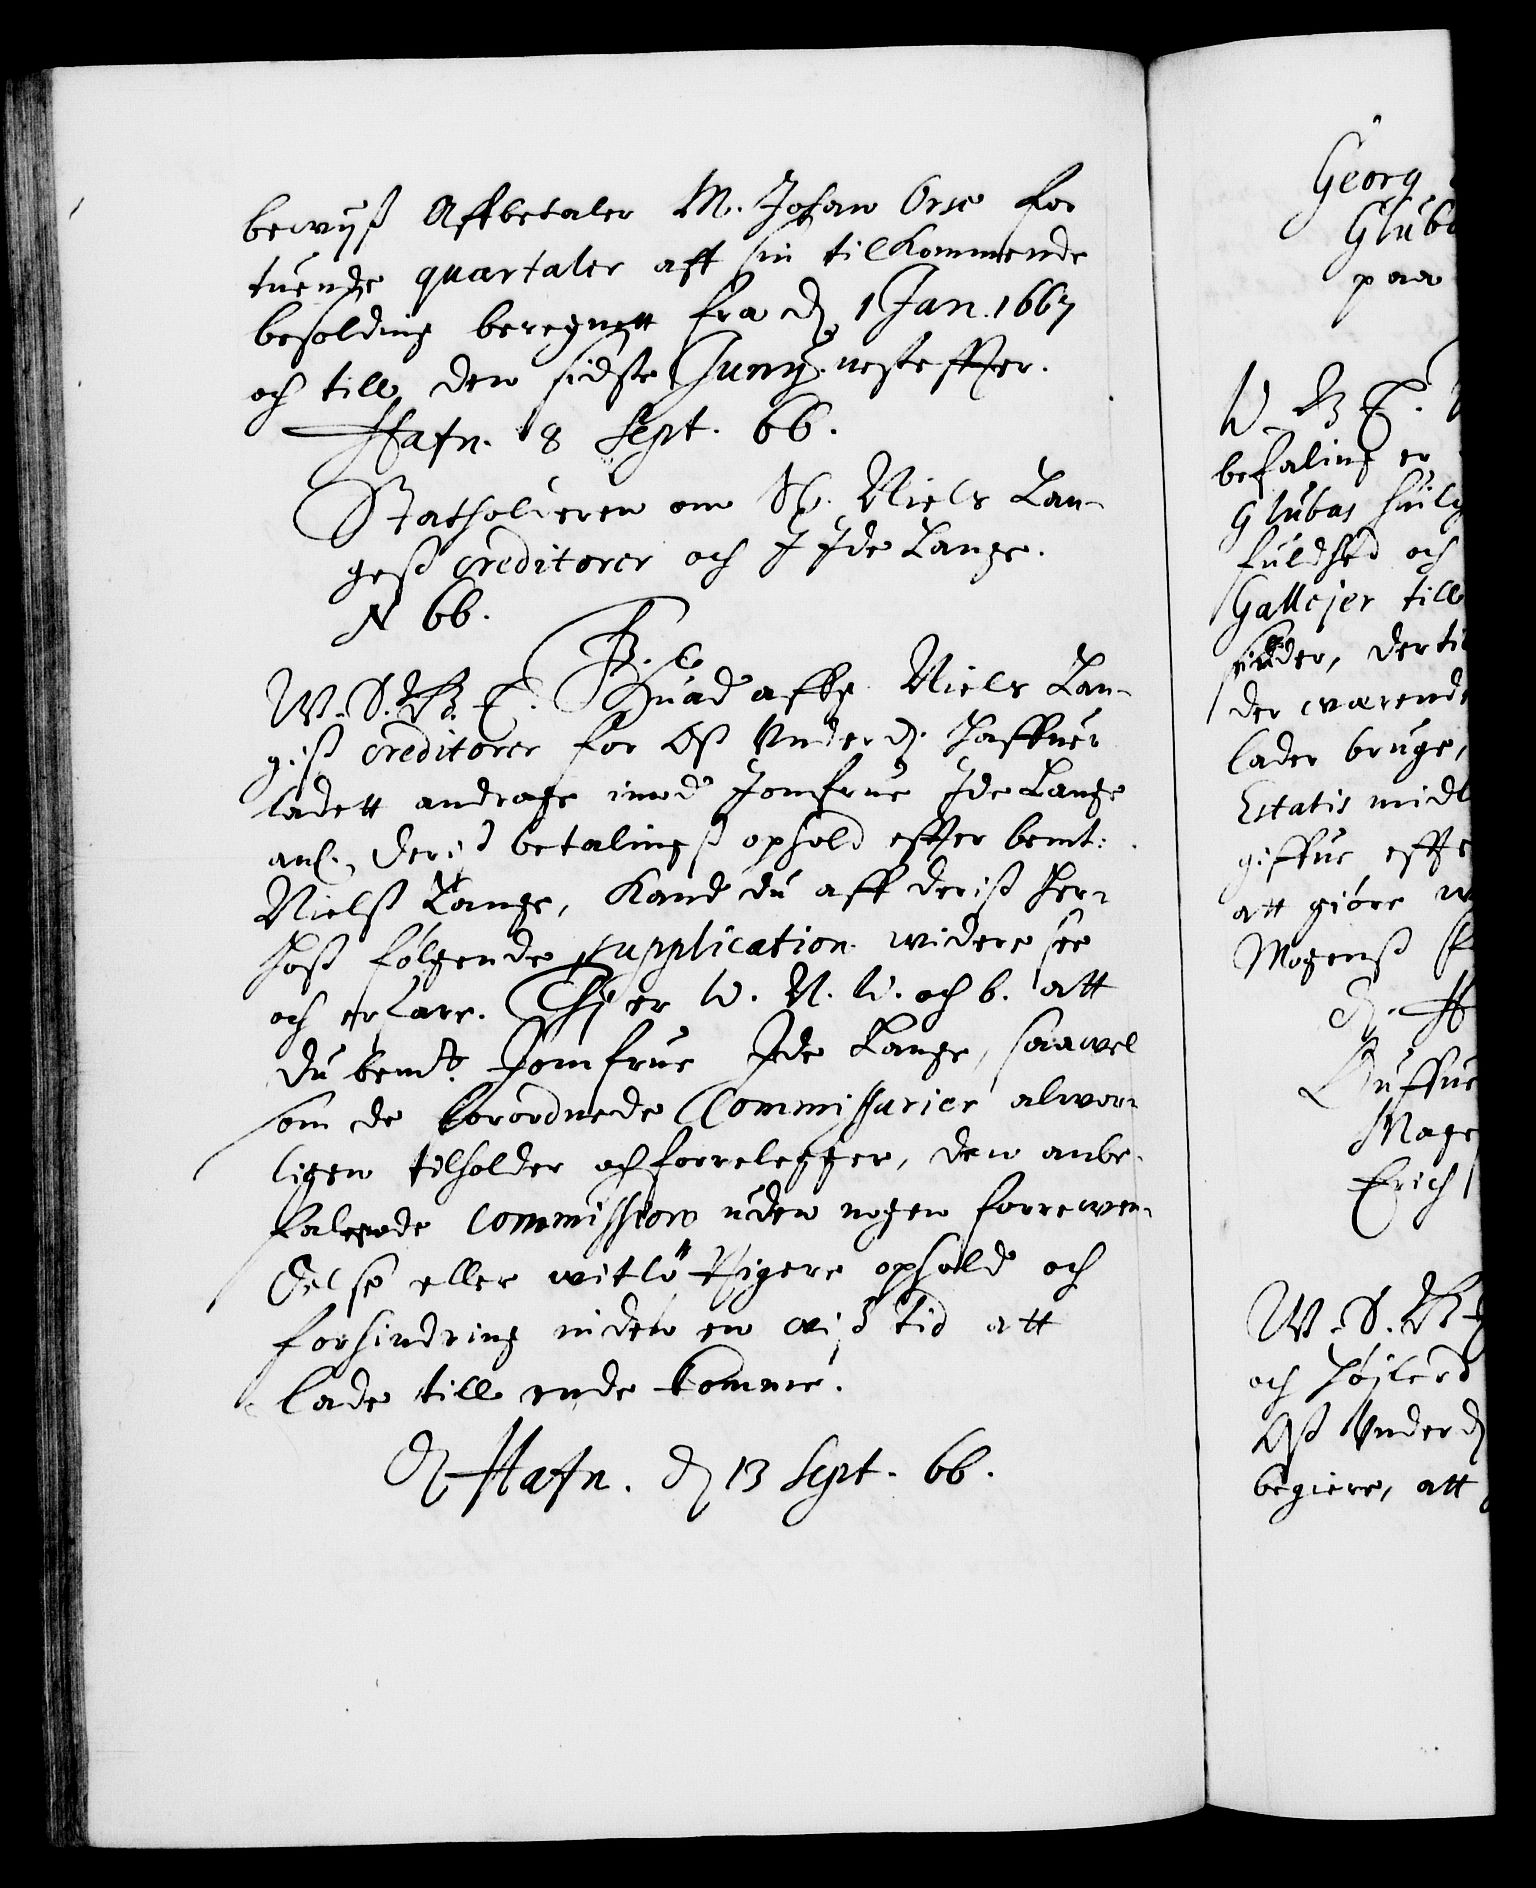 bewyß Affbetaler M. Johan Orse for
tuende quartaler aff sin tilkommende
besolding beregnett fra d. 1 Jan. 1667
och till den sidste Juny nesteffter.
Hafn. 8 Sept. 66.
Statholderen om Sl. Niels Lan-
geß creditorer och J. Ide Lange.
N 66.
W. S. G. T. Huad afbg. Niels Lan-
giß creditorer for Oß Underd. haffuer
ladett andrage imod Jomfrue Ide Lange
anl. deriß betalingß ophold effter bemt:
Nielß Lange, Kand du aff deriß her-
hoß følgende supplication widere see
och erfare. Thi er W. N. W. och b. att
du bemt. Jomfrue Ide Lange, saawel
som de forordnede Commissarier alwor-
ligen tilholder och forrelegger, den anbe-
falende Commission uden nogen forrewen-
delse eller witløfftigere ophold och
forhindring inden en wiß tid att
lade till ende komme.
Hafn. d. 13 Sept. 66.
Georg
Glub
paa
befaling er
Glubas
fuldhed och
Gallejer till
sider, derti
der warende
lader bruge,
Estatis midl
giffue effte
att giøre
Mogenß
Guffue
Mage
Erich
W. S. G.
och Høilerd
Oß Underd
begiere, att